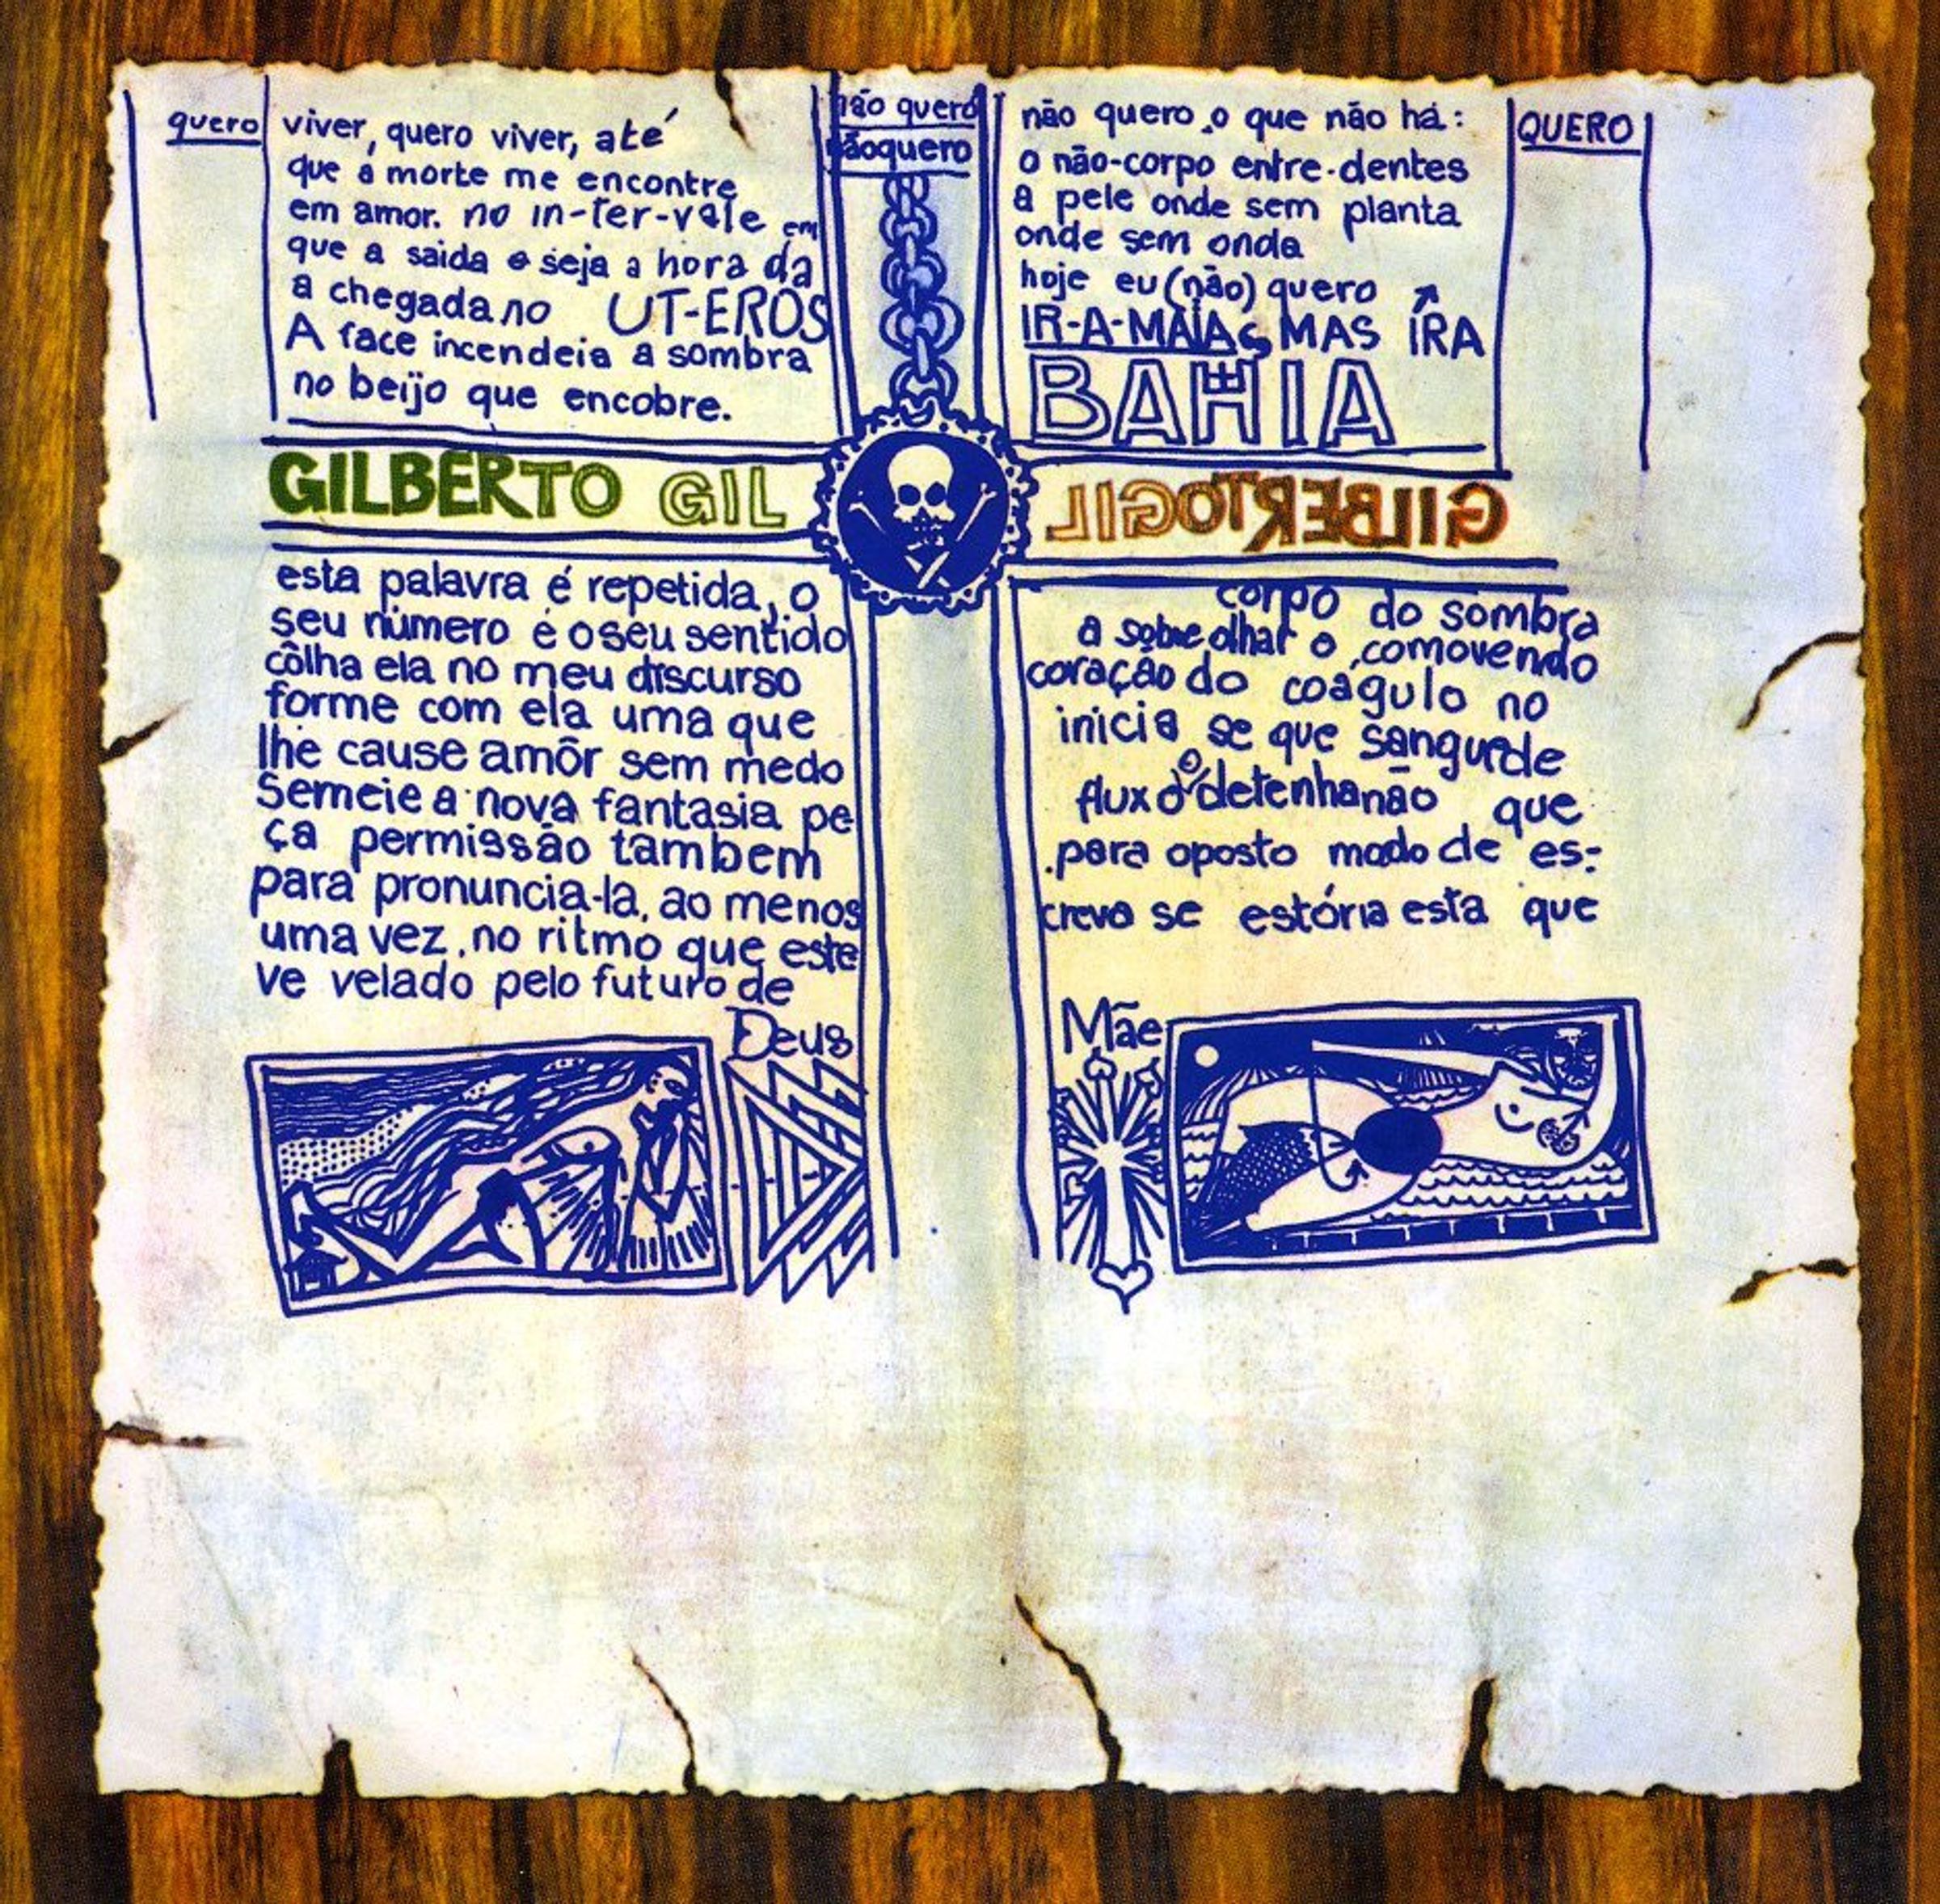 quero
viver, quero viver, até
que a morte me encontre
em amor. no in-ter-vale em
que a saida e seja a hora da
a chegada no UT-EROS
A face incendeia a sombra
no beijo que encobre.
não quero
nãoquero
não quero o que não há:
o não-corpo entre-dentes
a pele onde sem planta
onde sem onda
hoje eu (não) quero
IR-A-MAIAS MAS IRA
BAHIA
QUERO
GILBERTO GIL
GILBERTO GIL
esta palavra é repetida, o
seu número é o seu sentido
côlha ela no meu discurso
forme com ela uma que
lhe cause amôr sem medo
Semeie a nova fantasia pe
ça permissão tambem
para pronuncia-la, ao menos
uma vez, no ritmo que este
ve velado pelo futuro de
Deus
corpo do sombra
a sobre olhar o, comovendo
coração do coagulo no
inicia se que sangue de
fluxo o detenha não que
para oposto modo de es-
creva se estória esta que
Mãe